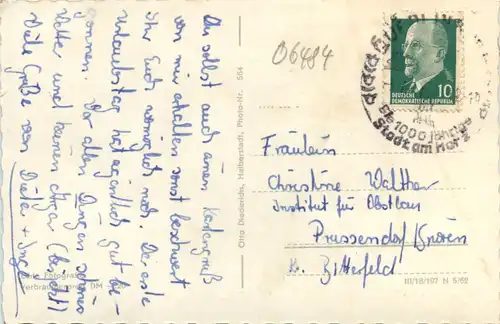 Du selbst auch einen Kartengruß
von mir erhalten sonst beschwert
ihr Euch womöglich noch. Die erste
Urlaubstag hat eigentlich gut be-
gonnen. Vor allen Dingen schönes
Wetter und keinen Ärger (bis jetzt)
Viele Grüße von Dieter + Inge
Otto Diederichs, Halberstadt, Photo-Nr. 554
06484
10
DEUTSCHE
DEMOKRATISCHE REPUBLIK
1000 jährige
Stadt am Harz
Fräulein
Christine Walther
Institut für Obstbau
Prussendorf
Kr. Bitterfeld
Fotografie
Verbraucherpreis DM
III/18/197 N 5/62